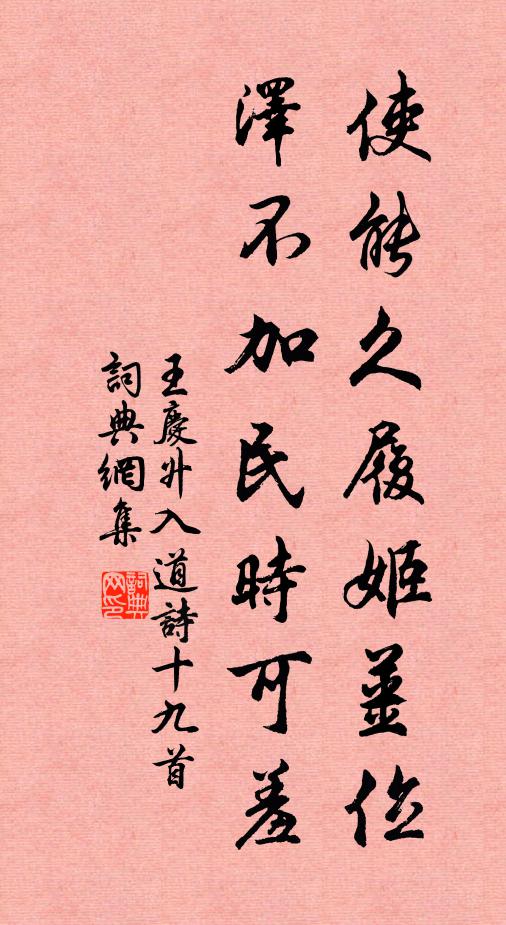 使能久履姬薑位
澤不加民時可羞
王慶升入道詩十九首
詞典網集
詞典
网印